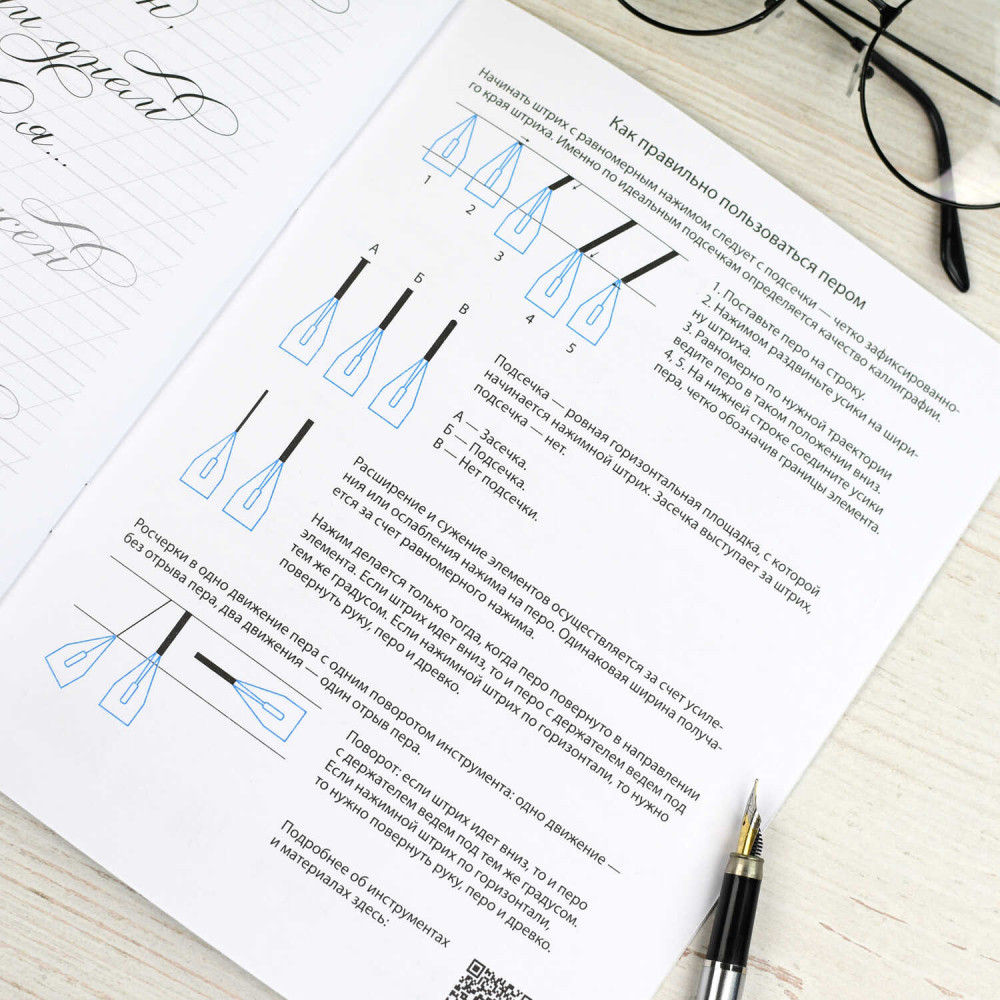 н,
и днем
я...
жен
Как правильно пользоваться пером
Начинать штрих с равномерным нажимом следует с подсечки — четко зафиксированно-
го края штриха. Именно по идеальным подсечкам определяется качество каллиграфии.
1
2
3
4
5
1. Поставьте перо на строку.
2. Нажимом раздвиньте усики на шири-
ну штриха.
3. Равномерно по нужной траектории
ведите перо в таком положении вниз.
4, 5. На нижней строке соедините усики
пера, четко обозначив границы элемента.
А
Б
В
Подсечка — ровная горизонтальная площадка, с которой
начинается нажимной штрих. Засечка выступает за штрих,
подсечка — нет.
А — Засечка.
Б — Подсечка.
В — Нет подсечки.
Расширение и сужение элементов осуществляется за счет усиле-
ния или ослабления нажима на перо. Одинаковая ширина получа-
ется за счет равномерного нажима.
Нажим делается только тогда, когда перо повернуто в направлении
элемента. Если штрих идет вниз, то и перо с держателем ведем под
тем же градусом. Если нажимной штрих по горизонтали, то нужно
повернуть руку, перо и древко.
Росчерки в одно движение пера с одним поворотом инструмента: одно движение —
без отрыва пера, два движения — один отрыв пера.
Поворот: если штрих идет вниз, то и перо
с держателем ведем под тем же градусом.
Если нажимной штрих по горизонтали,
то нужно повернуть руку, перо и древко.
Подробнее об инструментах
и материалах здесь: